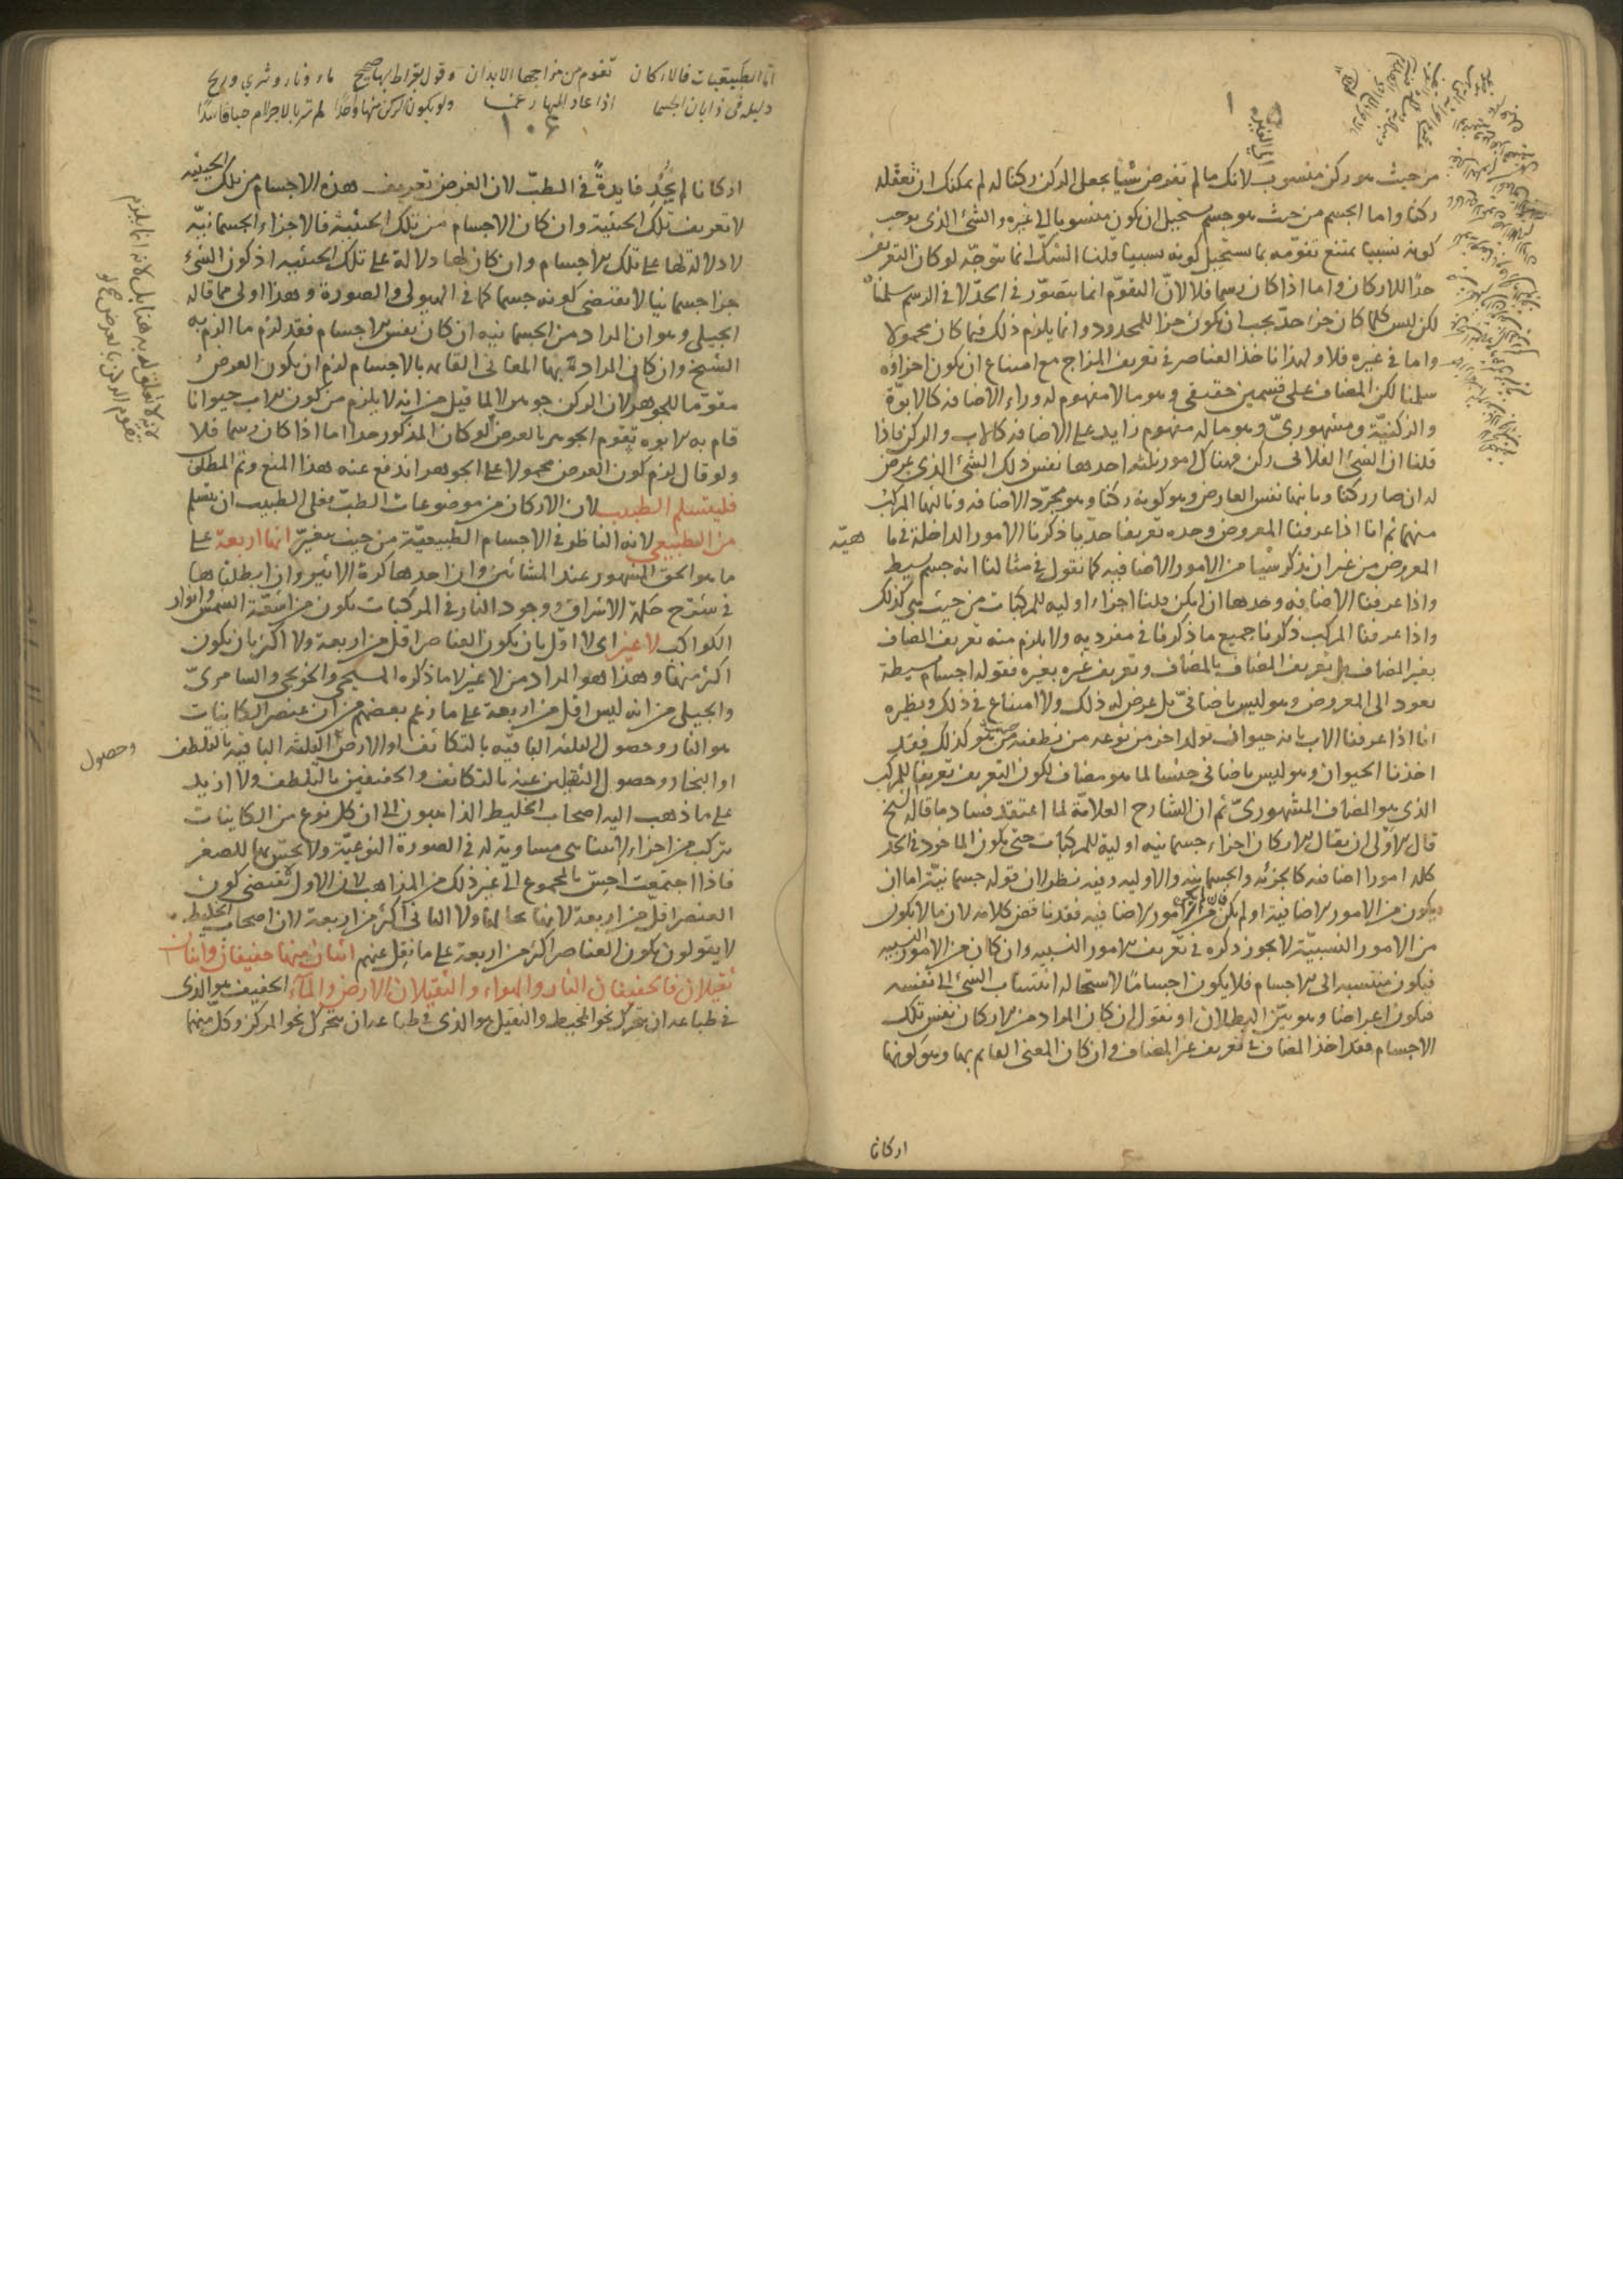 من حيث هو ركن منسوب لانك ما لم تفرض شيأ يجعل الركن ركنا له لم يمكنك ان تعقله
ركنا واما الجسم من حيث هو جسم يستحيل ان يكون منسوبا الى غيره والشئ الذى يوجب
كونه نسبيا يمتنع تقومه بما يستحيل كونه نسبيا قلنا الشك انما يتوجه لو كان التعريف
حدا للاركان واما اذا كان رسما فلا لان التقوم انما يتصور فى الحد لا فى الرسم سلمنا
لكن ليس كلما كان جزء حد يجب ان يكون جزا للمحدود وانما يلزم ذلك فيما كان محمولا
واما فى غيره فلا ولهذا ناخذ العناصر فى تعريف المزاج مع امتناع ان يكون اجزاؤه
سلمنا لكن المضاف على قسمين حقيقى وهو ما لا مفهوم له وراء الاضافه كالابوة
والركنية ومشهورى وهو ما له مفهوم زايد على الاضافه كالاب والركن فاذا
قلنا ان الشئ الفلانى ركن فهناك امور ثلثه احدها نفس ذلك الشئ الذى عرض
له ان صار ركنا وثانيها نفس العارض وهو كونه ركنا وهو مجرد الاضافه وثالثها المركب
منهما ثم انا اذا عرفنا المعروض وحده تعريفا حديا ذكرنا الامور الداخلة فى ما هيّة
المعروض من غير ان نذكر شيأ من الامور الاضافيه كما نقول فى مثالنا انه جسم بسيط
واذا عرفنا الاضافه وحدها ان امكن قلنا اجزاء اوليه للمركبات من حيث هى كذلك
واذا عرفنا المركب ذكرنا جميع ما ذكرنا فى مفرديه ولا يلزم منه تعريف المضاف
بغير المضاف بل تعريف المضاف بالمضاف وتعريف غيره بغيره فقوله اجسام بسيطة
يعود الى المعروض وهو ليس باضافى بل عرض له ذلك ولا امتناع فى ذلك ونظيره
انا اذا عرفنا الاب بانه حيوان تولد اخر من نوعه من نطفته من حيث هو كذلك فقد
اخذنا الحيوان وهو ليس باضافى جنسا لما هو مضاف لكون التعريف تعريفا للمركب
الذى هو المضاف المشهورى ثم ان الشارح العلامة لما اعتقد فساد ما قاله الشيخ
قال الاولى ان يقال الاركان اجزاء جسمانيه اولية للمركبات حتى يكون الماخوذ فى الحد
كله امورا اضافيه كالجزئيه والجسمانيه والاوليه وفيه نظر لان قوله جسمانية اما ان
يكون من الامور الاضافية او لم يكن فان لم يكن من الامور الاضافيه فقد ناقض كلامه لان ما لا يكون
من الامور النسبية لا يجوز ذكره فى تعريف الامور النسبيه وان كان من الامور النسبيه
فيكون منتسبه الى الاجسام فلا يكون اجساما لاستحاله انتساب الشئ الى نفسه
فيكون اعراضا وهو بين البطلان او نقول ان كان المراد من الاركان نفس تلك
الاجسام فقد اخذ المضاف فى تعريف غير المضاف وان كان المعنى القايم بها وهو كونها
اركانا
اما الطبيعيات فالاركان تقوم من مزاجها الابدان وقول بقراط بها صحيح ماء ونار وثرى وريح
دليله فى ذا بان الجسما اذا عاد اليها رغما ولو يكون الركن منها واحدا لم تر بالاجرام حيا فاسدا
١٠٤
اركانا لم يُجْدِ فايدة فى الطب لان الغرض تعريف هذه الاجسام من تلك الحيثيه
لا تعريف تلك الحيثية وان كان الاجسام من تلك الحيثية فالاجزاء الجسمانيّه
لا دلالة لها على تلك الاجسام وان كان لها دلالة على تلك الحيثيه اذ كون الشئ
جزا جسمانيا لا يقتضى كونه جسما كما فى الهيولى والصورة وهذا اولى مما قاله
الجيلى وهو ان المراد من الجسمانيه ان كان نفس الاجسام فقد لزم ما الزم به
الشيخ وان كان المراد بها المعانى القايمه بالاجسام لزم ان يكون العرض
مقوما للجوهر لان الركن جوهر لا لما قيل من انه لا يلزم من كون الاب حيوانا
قام به الابوه تقوم الجوهر بالعرض لو كان المذكور حدا اما اذا كان رسما فلا
ولو قال لزم كون العرض محمولا على الجوهر اندفع عنه هذا المنع وتم المطلق
فليتسلم الطبيب لان الاركان من موضوعات الطب فعلى الطبيب ان يتسلم
من الطبيعى لانه الناظر فى الاجسام الطبيعيّة من حيث يتغير انها اربعة على
ما هو الحق المشهور عند المشائين وان احدها كرة الاثير وان ابطلناها
فى شرح حكمة الاشراق ووجود النار فى المركبات يكون من اشعّة الشمس وانوار
الكواكب لا غير اى لا اقل بان يكون العناصر اقل من اربعة ولا اكثر بان يكون
اكثر منها وهذا هو المراد من لا غير لا ما ذكره المسيحى والخونجى والسامرىّ
والجيلى من انه ليس اقل من اربعة على ما زعم بعضهم من ان عنصر الكاينات
هو النار وحصول الثلثه الباقيّه بالتكاثف او الارض وحصول الثلثه الباقيه بالتلطف
او البخار وحصول الثقيلين عنه بالتكاثف والخفيفين بالتلطف ولا ازيد
على ما ذهب اليه اصحاب الخليط الذاهبون الى ان كل نوع من الكاينات
يتركب من اجزاء لا تتناهى مساوية له فى الصورة النوعيّة ولا يحسّ بها للصغر
فاذا اجتمعت احس بالمجموع الى غير ذلك من المذاهب لان الاول يقتضى كون
العنصر اقلّ من اربعة لا بقاء بحالها ولا الثانى اكثر من اربعة لان اصحاب الخليط
لا يقولون بكون العناصر اكثر من اربعة على ما نقل عنهم اثنان منها خفيفان واثنان
ثقيلان فالخفيفان النار والهواء والثقيلان الارض والماء الخفيف هو الذى
فى طباعه ان يتحرك نحو المحيط والثقيل هو الذى فى طباعه ان يتحرك نحو المركز وكل منهما